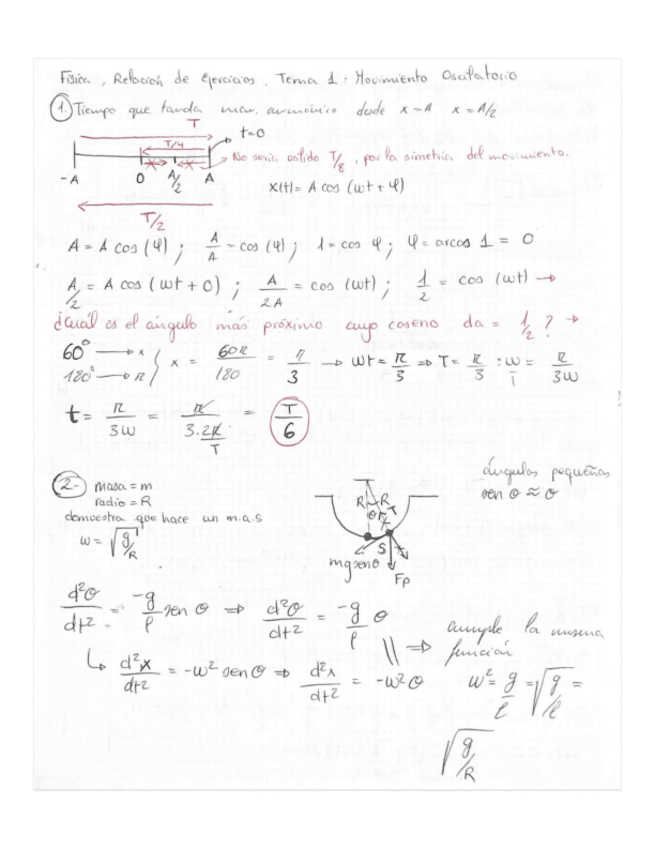 Física. Relación de Ejercicios. Tema 1: Movimiento Oscilatorio
1. Tiempo que tarda mov. armónico desde x=A x=A/2
T
T/4 t=0
No sería valido T/8, por la simetría del movimiento.
-A 0 A/2 A
x(t)= A cos (wt+φ)
T/2
A = A cos (φ) ; A/A = cos (φ) ; 1 = cos φ ; φ = arcos 1 = 0
A/2 = A cos (wt+0) ; A/2A = cos (wt) ; 1/2 = cos (wt) →
¿Cuál es el ángulo más próximo cuyo coseno da = 1/2 ? →
60° → x
180° → π } x = 60π/180 = π/3 → wt = π/3 ⇒ T = π/3 : w/1 = π/3w
t = π/3w = π/3·2π/T = T/6
2- masa = m
radio = R
demuestra que hace un m.a.s
w = √g/R
ángulos pequeños
sen θ ≈ θ
R R
θ T
S
mg senθ
Fp
d²θ/dt² = -g/l sen θ ⇒ d²θ/dt² = -g/l θ
↳ d²x/dt² = -w² sen θ ⇒ d²x/dt² = -w² θ
⇒ cumple la misma
función
w² = g/l = √g/l =
√g/R